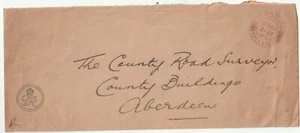 The County Road Surveyor,
County Buildings
Aberdeen.